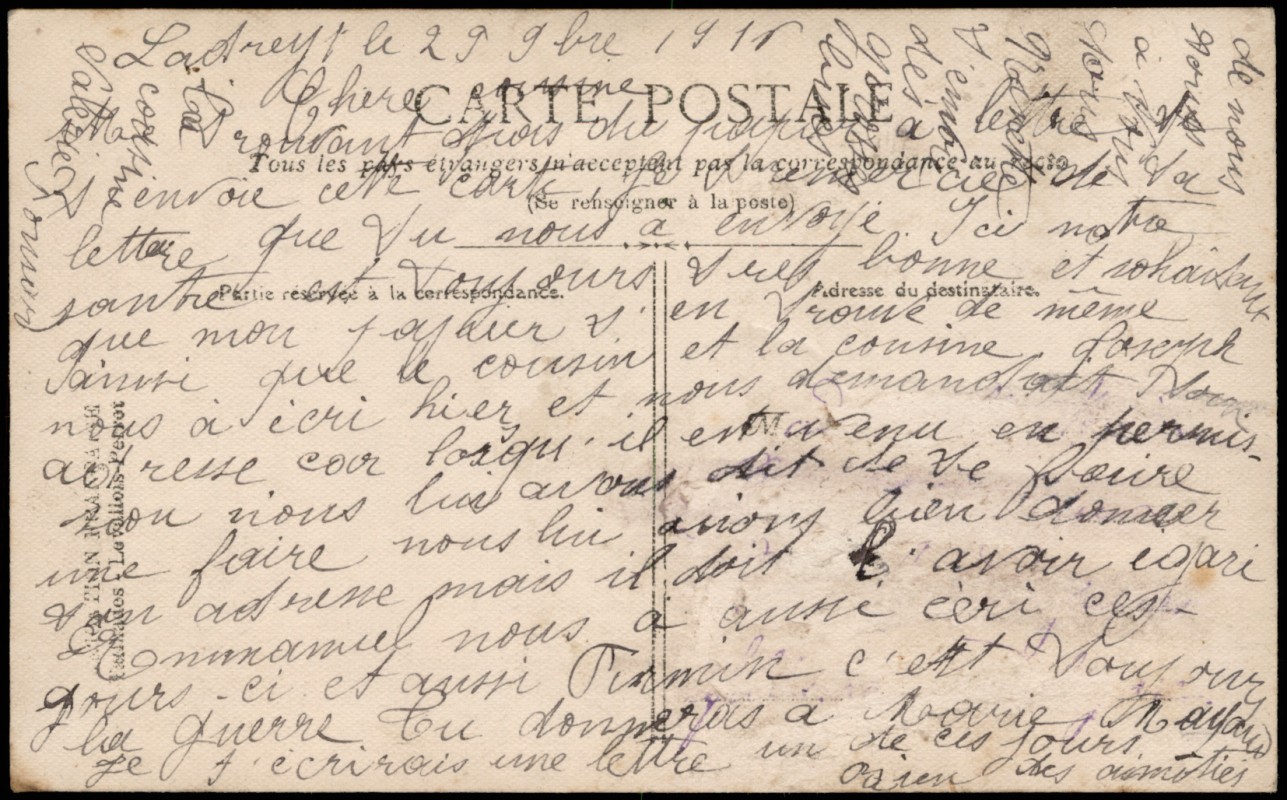 Ladreyt le 29 9bre 1915
Chère cousine
CARTE POSTALE
Ne trouvant pas du papier à lettre je
Tous les pays étrangers n'acceptent pas la correspondance au recto
t envoie cette carte je te remercie de ta
(Se renseigner à la poste)
lettre que tu nous a envoyé. Ici notre
santée est toujours tres bonne et souhaitant
Partie réservée à la correspondance.
Adresse du destinataire.
que mon papier t' en trouve de même
t'ainsi que le cousin et la cousine Joseph
nous à écri hier et nous demandait ton
adresse car lorsqu'il est venu en permis-
sion nous lui avons dit de te faire
une faire nous lui avions bien donner
ton adresse mais il doit l'avoir égari
Emmanuel nous a aussi écri ces
jours-ci et aussi Firmin c'est toujours
la guerre Tu donneras à Marie
je t'écrirais une lettre un de ces jours.
bien des amitiés
de nous
tous
à vous
tous
Reçois
d'emma
des
baisers
Ta
cousine
EDITION FRANÇAISE
Levallois-Perret